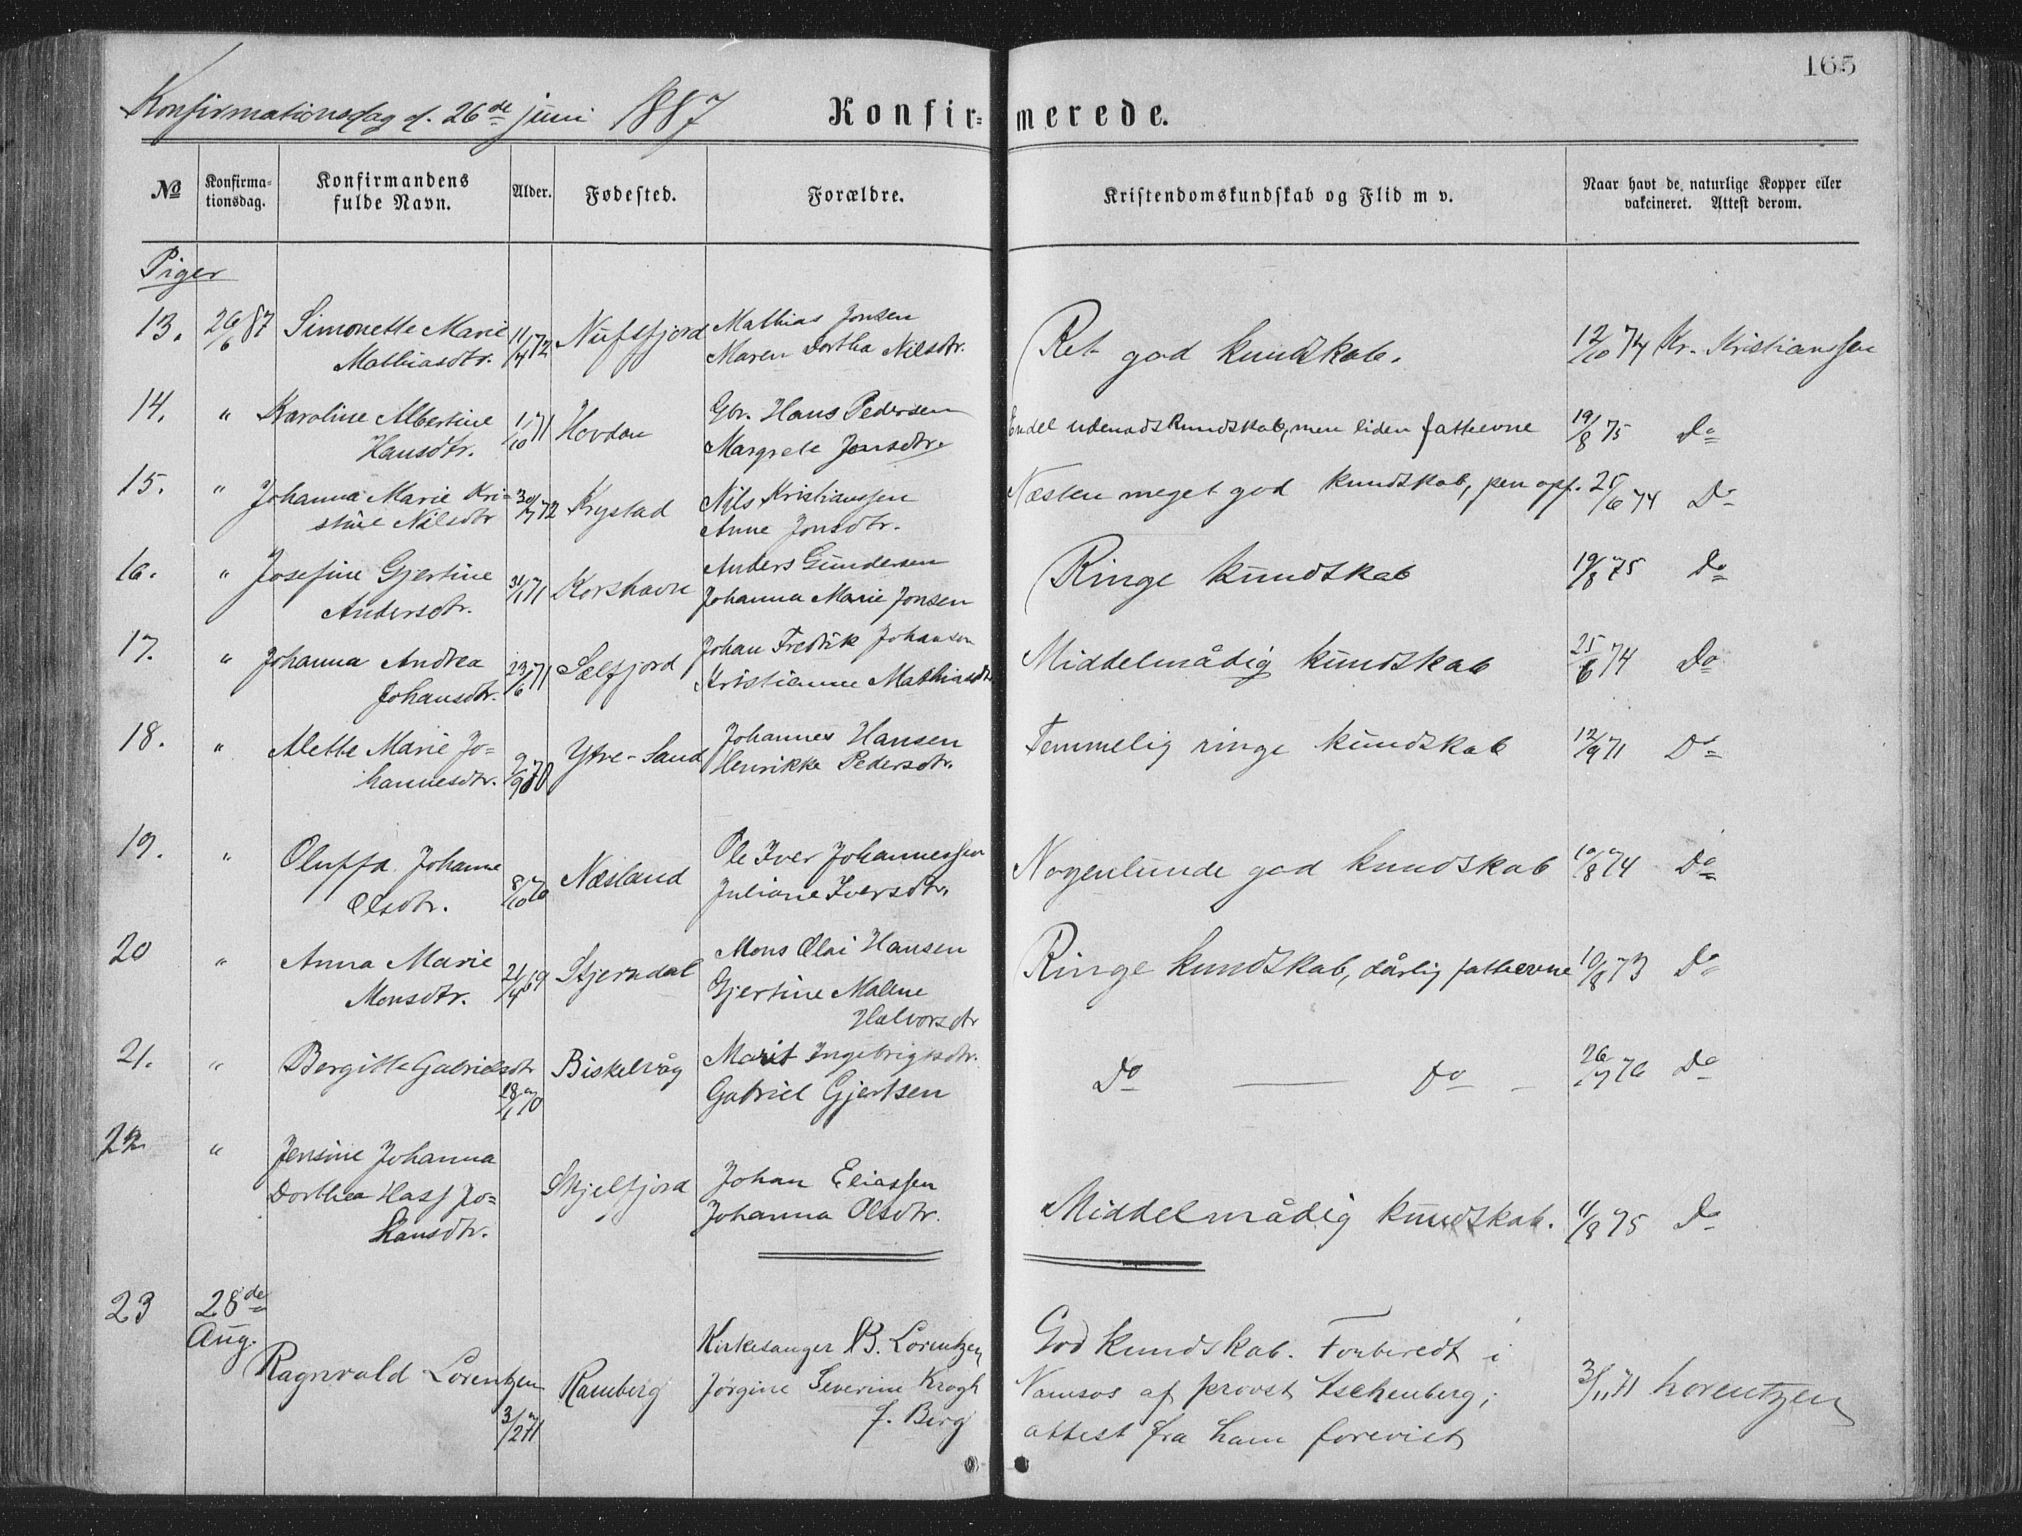 165
Konfirmationsdag d. 26de juni 1887 Konfir- merede.
No Konfirma-tionsdag. Konfirmandens fulde Navn. Alder. Fødested. Forældre. Kristendomskundskab og Flid m v. Naar havt de naturlige Kopper eller vakcineret. Attest derom.
Piger
13. 26/6 87 Simonette Marie 11/4 72 Nufsfjord Mathias Jonsen Ret god kundskab. 12/10 74 Kr. Kristianssen
Mathiasdtr. Maren Dortha Nilsdtr.
14. " Karoline Albertine 1/10 71 Hovdan Gbr. Hans Pedersen Endel udenadskundskab, men liden fatteevne 19/8 75 Do
Hansdtr. Margrete Jonsdtr.
15. " Johanna Marie Kri- 30/7 72 Krystad Nils Kristianssen Næsten meget god kundskab, pen opf. 25/6 74 Do
stine Nilsdtr Anne Jonsdtr.
16. " Josefine Gjertine 31/1 71 Korshavn Anders Gundersen Ringe kundskab 19/8 75 Do
Andersdtr. Johanna Marie Jonsen
17. " Johanna Andrea 23/6 71 Selfjord Johan Fredrik Johansen Middelmådig kundskab 25/6 74 Do
Johansdtr. Kristianne Mathiasdtr
18. " Alette Marie Jo- 2/9 70 Ytre-Sand Johannes Hansen Temmelig ringe kundskab 12/9 71 Do
hannesdtr. Henrikke Pedersdtr.
19. " Oluffa Johanne 8/10 70 Næsland Ole Iver Johannessen Nogenlunde god kundskab 10/8 74 Do
Olsdtr. Juliane Iversdtr.
20 " Anna Marie 21/4 69 Stjerndal Mons Olai Hansen Ringe kundskab, dårlig fatteevne 10/8 73 Do
Monsdtr. Gjertine Malene
Halvorsdtr
21. " Bergitte Gabrielsdtr 18/1 70 Biskelvåg Marit Ingebrigtsdtr. Do — Do — 26/7 76 Do
Gabriel Gjertsen
22. " Jensine Johanna
Dorthea Hass Jo- Skjelfjord Johan Eliassen Middelmådig kundskab. 11/8 75 Do
hansdtr. Johanna Olsdtr.
23 28de Aug. Kirkesanger B. Lorentzen God kundskab. Forberedt i
Ragnvald Lorentzen 3/2 71 Ramberg Jørgine Severine Krogh Namsos af provst Eschenberg; 3/11 71 Lorentzen
f. Berg attest fra ham forevist